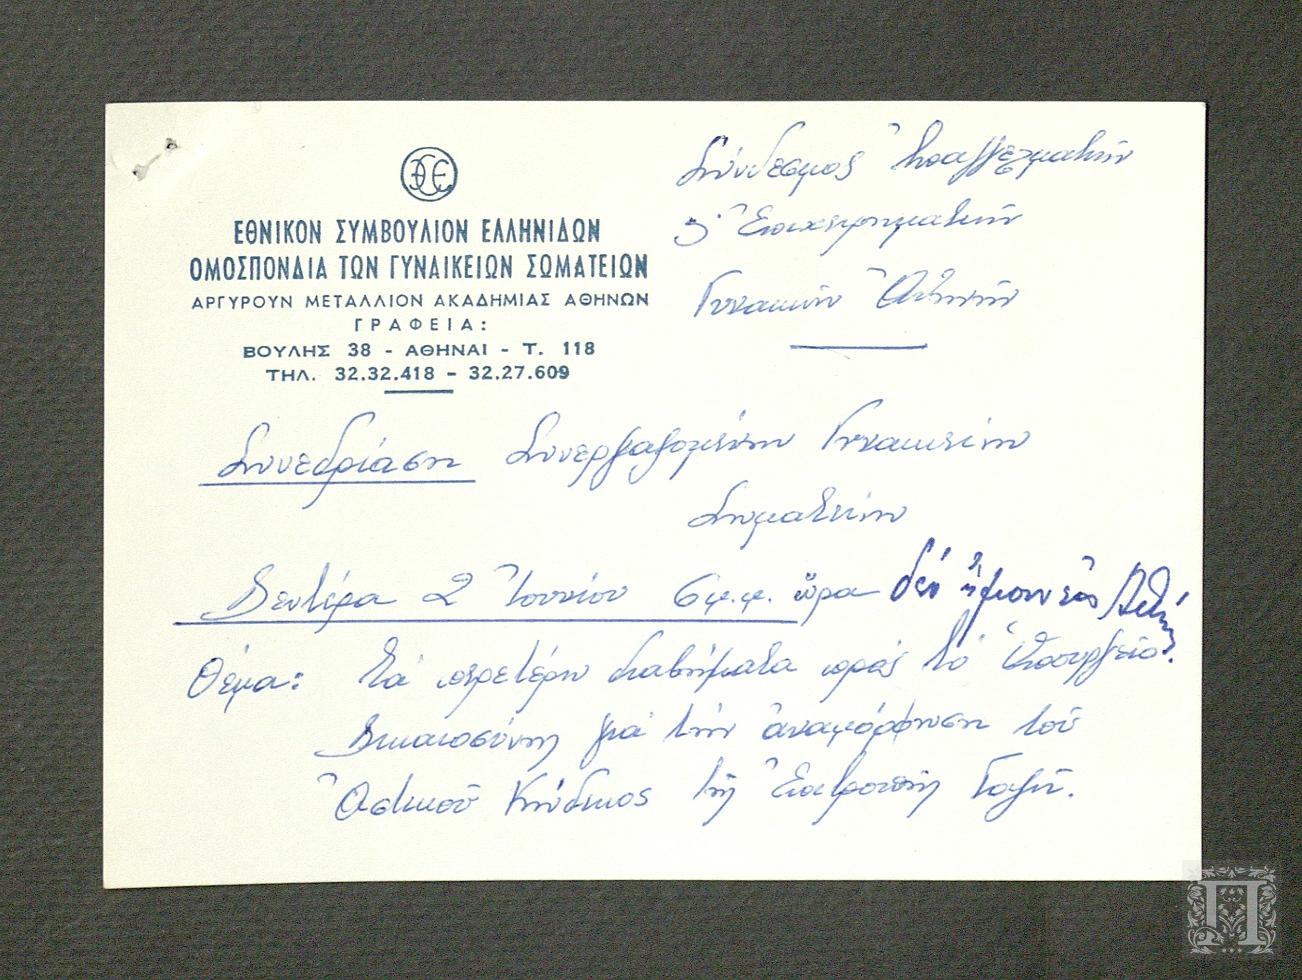 ΕΘΝΙΚΟΝ ΣΥΜΒΟΥΛΙΟΝ ΕΛΛΗΝΙΔΩΝ
ΟΜΟΣΠΟΝΔΙΑ ΤΩΝ ΓΥΝΑΙΚΕΙΩΝ ΣΩΜΑΤΕΙΩΝ
ΑΡΓΥΡΟΥΝ ΜΕΤΑΛΛΙΟΝ ΑΚΑΔΗΜΙΑΣ ΑΘΗΝΩΝ
ΓΡΑΦΕΙΑ:
ΒΟΥΛΗΣ 38 - ΑΘΗΝΑΙ - Τ. 118
ΤΗΛ. 32.32.418 - 32.27.609
Σύνδεσμος Ἐπαγγελματιῶν
& Ἐπιχειρηματιῶν
Γυναικῶν Ἀθηνῶν
Συνεδρίαση Συνεργαζομένων Γυναικείων
Σωματείων
Δευτέρα 2 Ἰουνίου 6 μ.μ. ὥρα
Θέμα: Τά περετέρω διαβήματα πρός τό Ὑπουργεῖο
Δικαιοσύνης γιά τήν ἀναμόρφωση τοῦ
Ἀστικοῦ Κώδικος τῆς Ἐπιτροπῆς Γαζῆ.